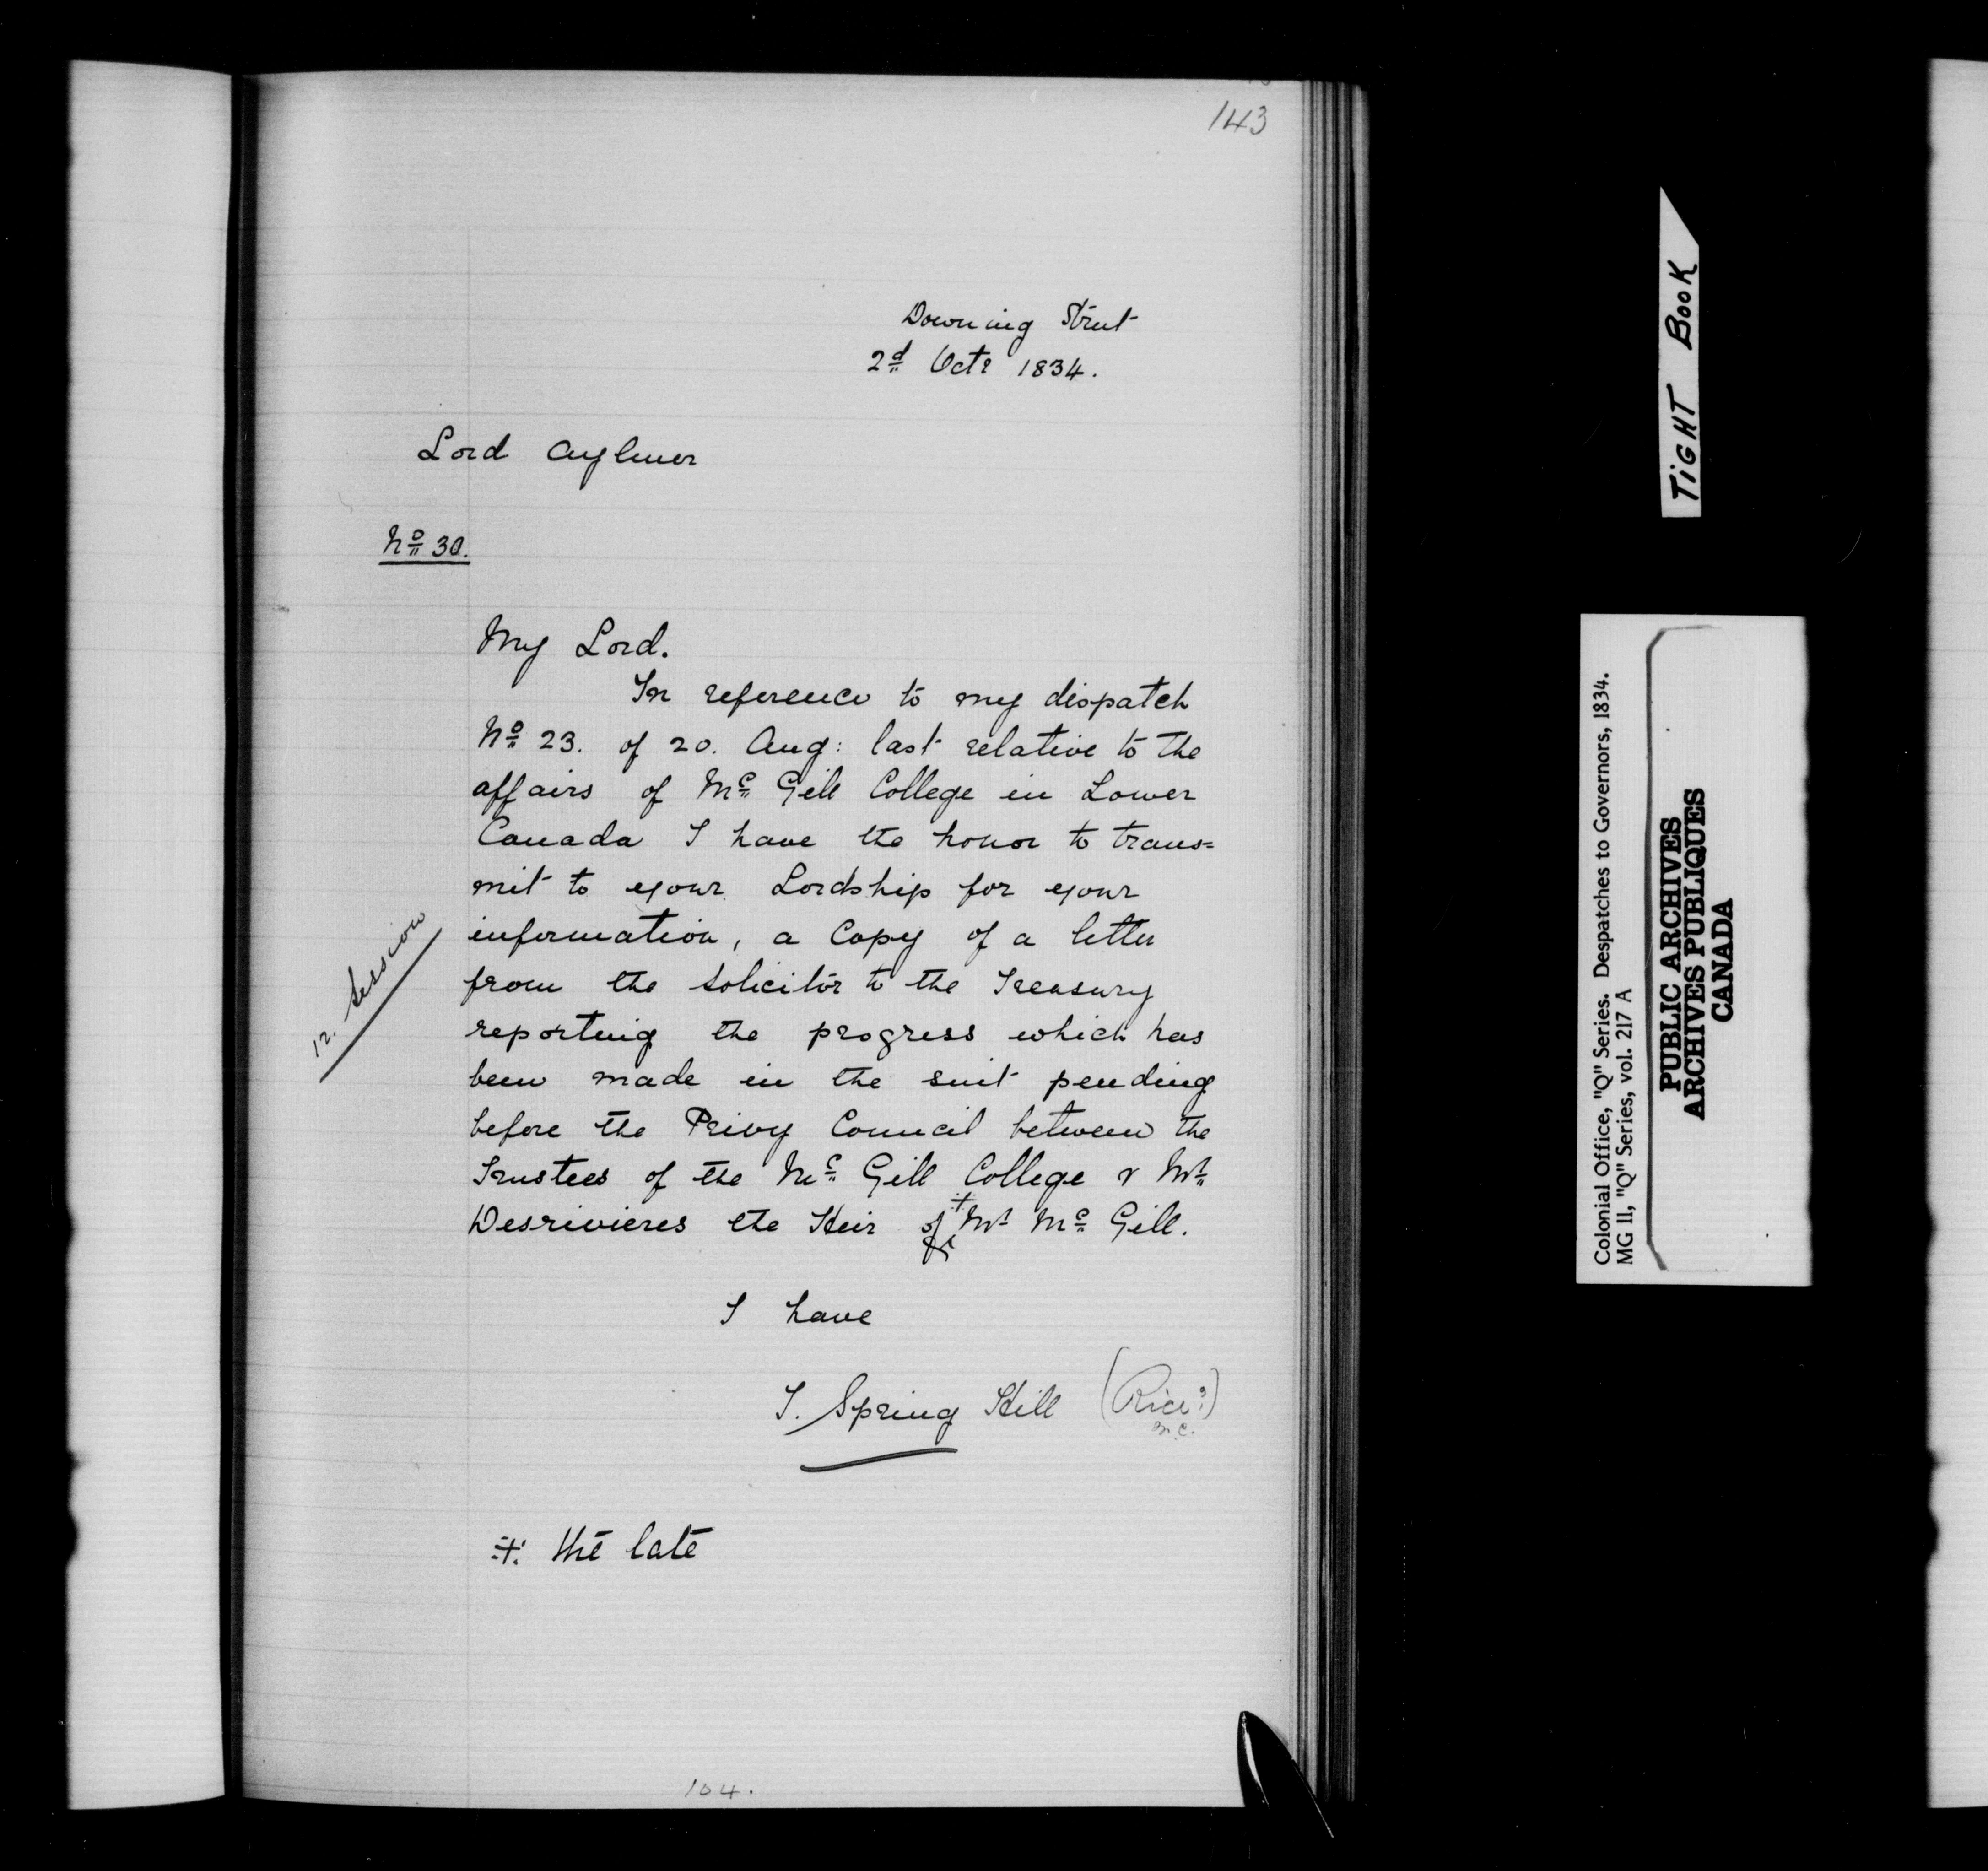 143
Downing Street
2d Octr 1834.
Lord Aylmer
No 30.
My Lord.
In reference to my dispatch
No 23. of 20. Aug: last relative to the
affairs of Mc Gill College in Lower
Canada I have the honor to trans=
mit to your Lordship for your
information, a Copy of a letter
from the Solicitor to the Treasury
reporting the progress which has
been made in the suit pending
before the Privy Council between the
Trustees of the Mc Gill College & Mr
Desrivieres the Heir of + Mr Mc Gill.
I have
T. Spring Hill (Rice?)
m.c.
+ the late
12. Session
104.
TIGHT BOOK
Colonial Office, "Q" Series. Despatches to Governors, 1834.
MG 11, "Q" Series, vol. 217 A
PUBLIC ARCHIVES
ARCHIVES PUBLIQUES
CANADA